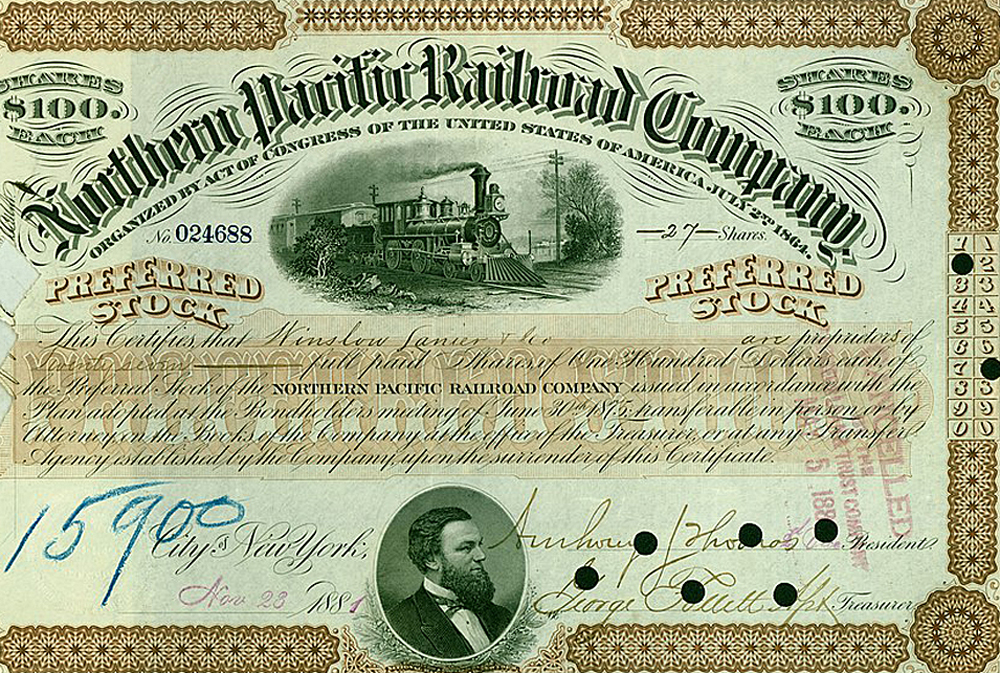 SHARES $100. EACH
SHARES $100. EACH
Northern Pacific Railroad Company,
ORGANIZED BY ACT OF CONGRESS OF THE UNITED STATES OF AMERICA, JULY 2ND 1864.
No. 024688
—27—Shares.
PREFERRED STOCK
PREFERRED STOCK
This Certifies, that Winslow Lanier & Co are proprietors of
Twenty seven full paid Shares of One Hundred Dollars each, of
the Preferred Stock of the NORTHERN PACIFIC RAILROAD COMPANY issued in accordance with the
Plan adopted at the Bondholders meeting of June 30th 1875, transferable in person or by
Attorney on the Books of the Company, at the office of the Treasurer, or at any Transfer
Agency established by the Company, upon the surrender of this Certificate.
1 1
2
3 3
4 4
5 5
6 6
7
8 8
9 9
0 0
CANCELLED
TRUST COMPANY
5 188
15900
City of New York,
Nov 23 1881
President.
George Treasurer.